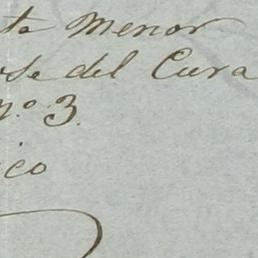 to Menor
ose del Cura
nº 3.
ico